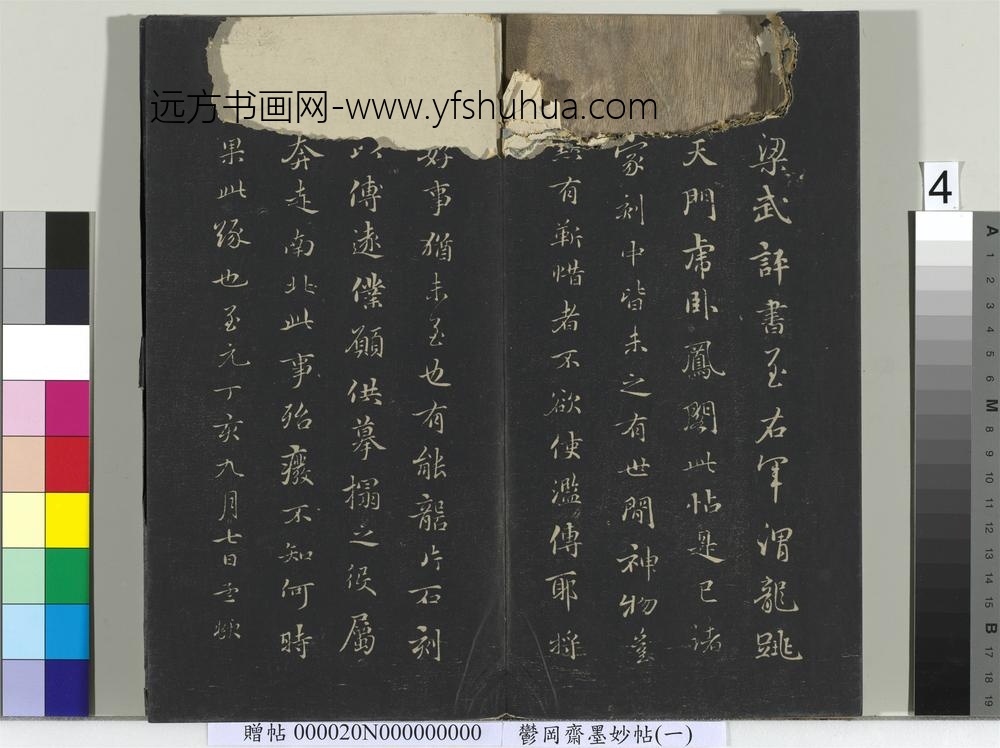 远方书画网-www.yfshuhua.com
梁武評書至右軍謂龍跳
天門虎卧鳳閣此帖是已諸
家刻中皆未之有世間神物豈
有靳惜者不欲使濫傳耶將
好事猶未至也有能龍片石刻
以傳遠僕願供摹搨之役屬
奔走南北此事殆癈不知何時
果此緣也至元丁亥九月七日
4
A
1
2
3
4
5
6
M
8
9
10
11
12
13
14
15
B
17
18
19
贈帖 000020N000000000 鬱岡齋墨妙帖(一)